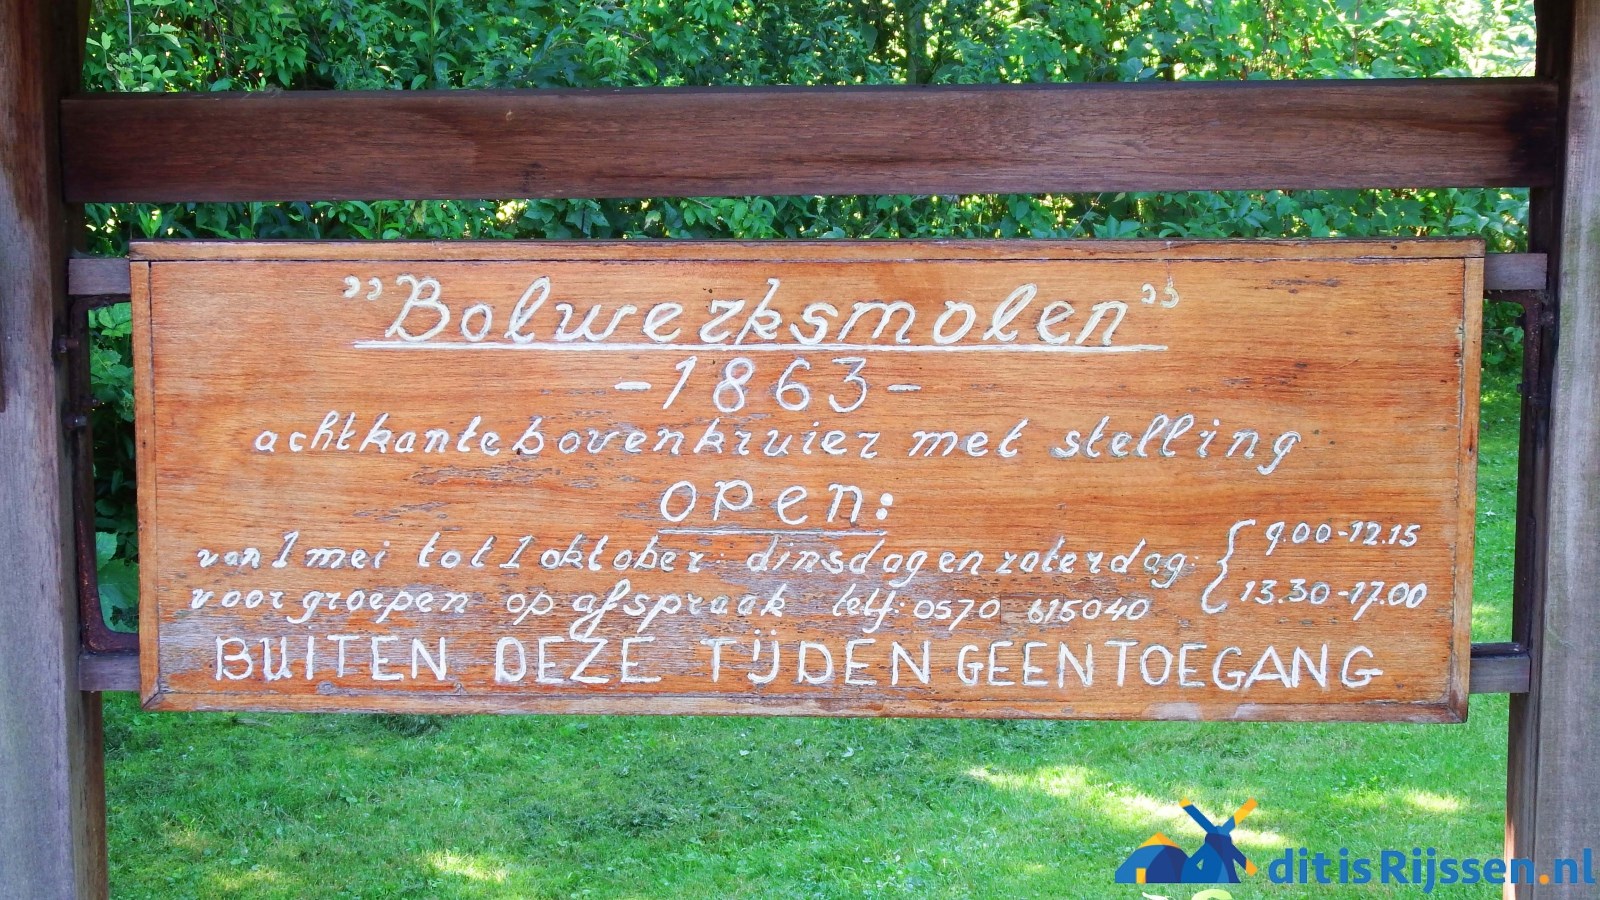 "Bolwerksmolen"
-1863-
achtkante bovenkruier met stelling
open:
van 1 mei tot 1 oktober: dinsdag en zaterdag: { 9.00-12.15
13.30-17.00
voor groepen op afspraak telf: 0570 615040
BUITEN DEZE TIJDEN GEEN TOEGANG
ditisRijssen.nl